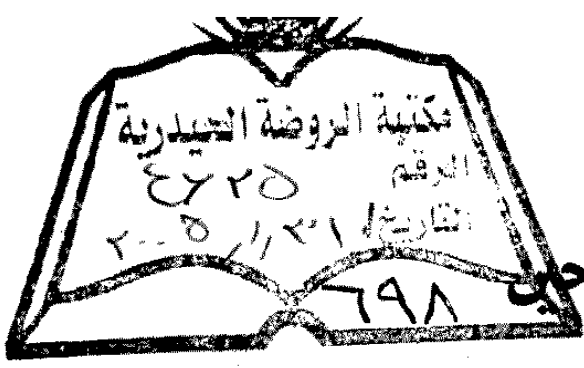 مكتبة الروضة الحيدرية
الرقم ٤٦٢٥
التاريخ ٢٠٠٥/١/٣١
٦٩٨